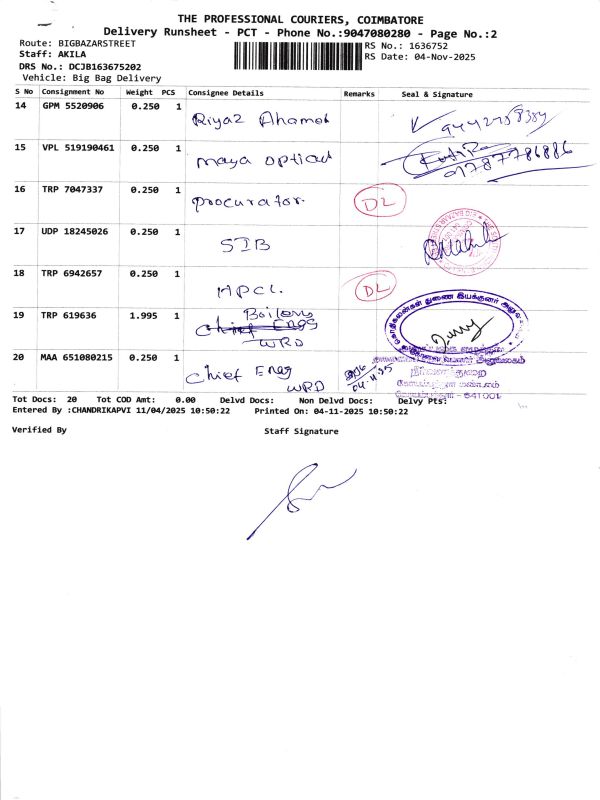 THE PROFESSIONAL COURIERS, COIMBATORE
Delivery Runsheet - PCT - Phone No.:9047080280 - Page No.:2
Route: BIGBAZARSTREET
RS No.: 1636752
Staff: AKILA
RS Date: 04-Nov-2025
DRS No.: DCJB163675202
Vehicle: Big Bag Delivery
S No Consignment No Weight PCS Consignee Details Remarks Seal & Signature
14 GPM 5520906 0.250 1 Riyaz Ahamed
15 VPL 519190461 0.250 1 Maya optical 9787786886
16 TRP 7047337 0.250 1 procurator. DL
17 UDP 18245026 0.250 1 SIB
18 TRP 6942657 0.250 1 HPCL DL
19 TRP 619636 1.995 1 Boilers
Chief Engg
WRD
20 MAA 651080215 0.250 1 Chief Engg
WRD
04.11.25
நிர்வாகத்துறை
Tot Docs: 20 Tot COD Amt: 0.00 Delvd Docs: Non Delvd Docs: Delvy Pts:
Entered By :CHANDRIKAPVI 11/04/2025 10:50:22 Printed On: 04-11-2025 10:50:22
Verified By Staff Signature